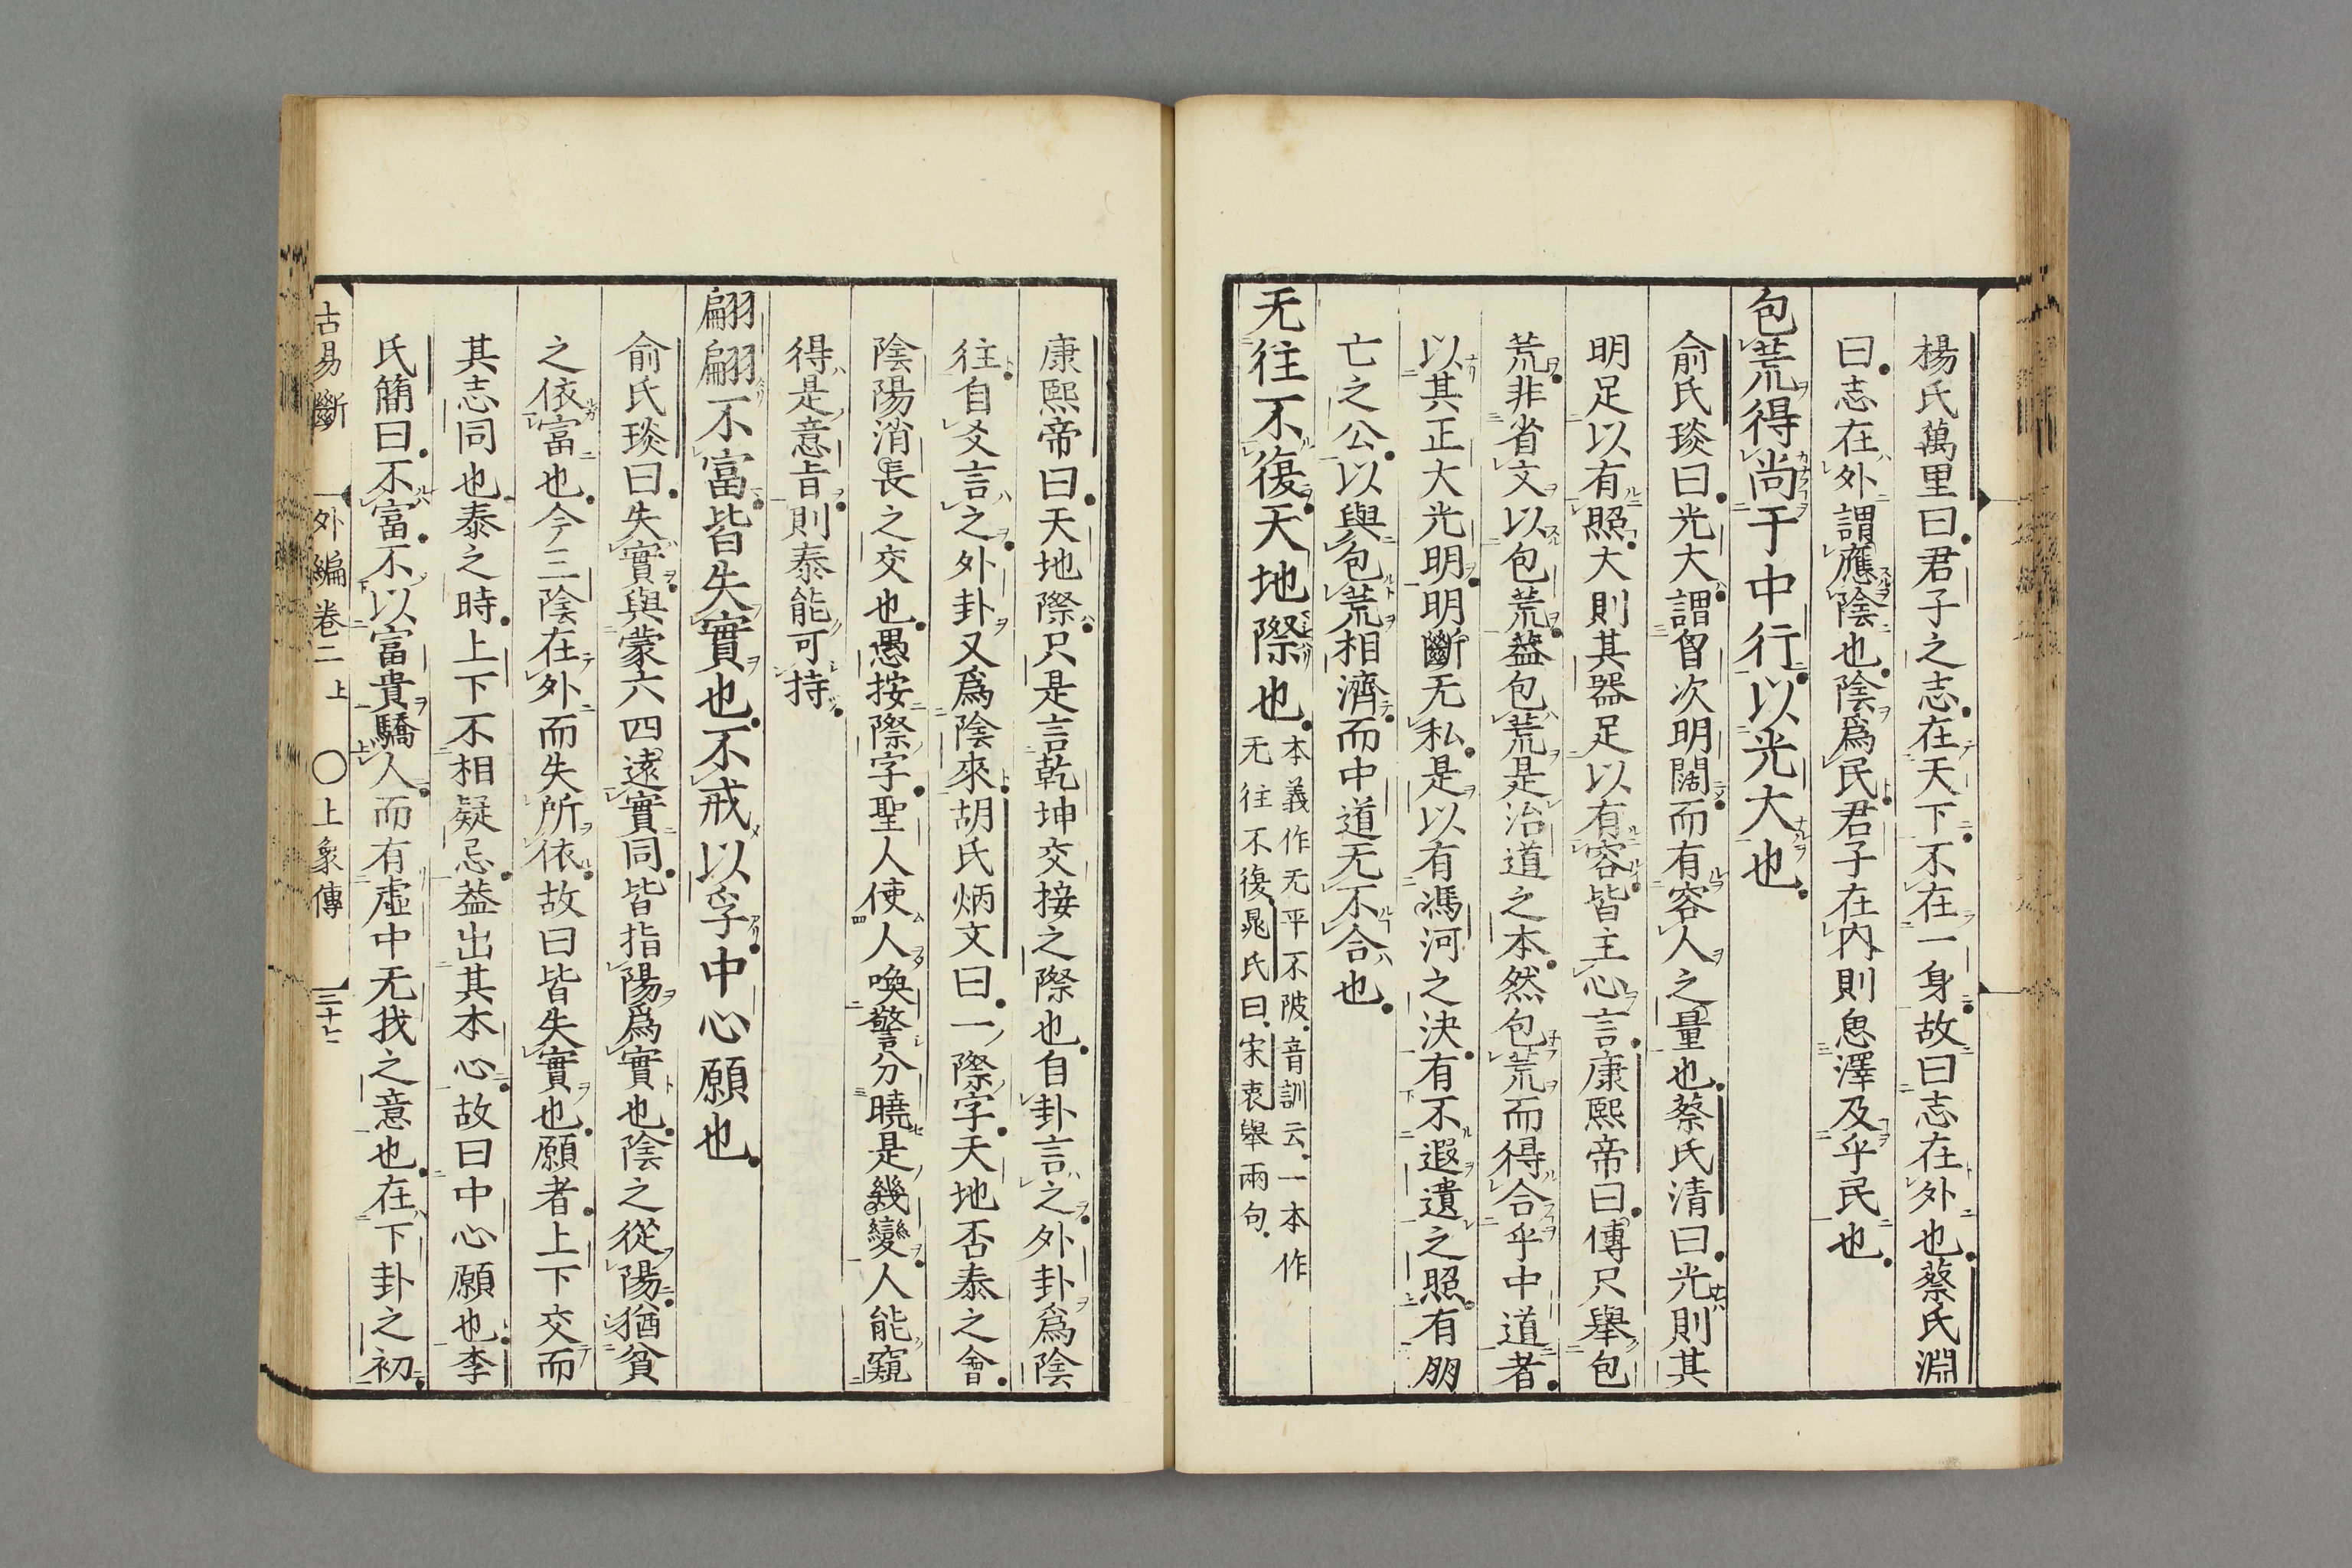 楊氏萬里曰君子之志在天下不在一身故曰志在外也蔡氏淵
曰志在外謂應陰也陰爲民君子在內則惠澤及乎民也
包荒得尚于中行以光大也
俞氏琰曰光大謂智次明闊而有容人之量也蔡氏清曰光則其
明足以有照大則其器足以有容皆主心言康熙帝曰傳只舉包
荒非省文以包荒蓋包荒是治道之本然包荒而得合乎中道者
以其正大光明明斷无私是以有馮河之決有不遐遺之照有朋
亡之公以與包荒相濟而中道无不合也
无往不復天地際也
本義作无平不陂音訓云一本作
无往不復晁氏曰宋衷舉兩句
康熙帝曰天地際只是言乾坤交接之際也自卦言之外卦爲陰
往自爻言之外卦又爲陰來胡氏炳文曰一際字天地否泰之會
陰陽消長之交也愚按際字聖人使人喚警分曉是幾變人能窺
得是意旨則泰能可持
翩翩不富皆失實也不戒以孚中心願也
俞氏琰曰失實與蒙六四遠實同皆指陽爲實也陰之從陽猶貧
之依富也今三陰在外而失所依故曰皆失實也願者上下交而
其志同也泰之時上下不相疑忌蓋出其本心故曰中心願也李
氏簡曰不富不以富貴驕人而有虛中无我之意也在下卦之初
古易斷 外編卷二上 〇上象傳 三十七